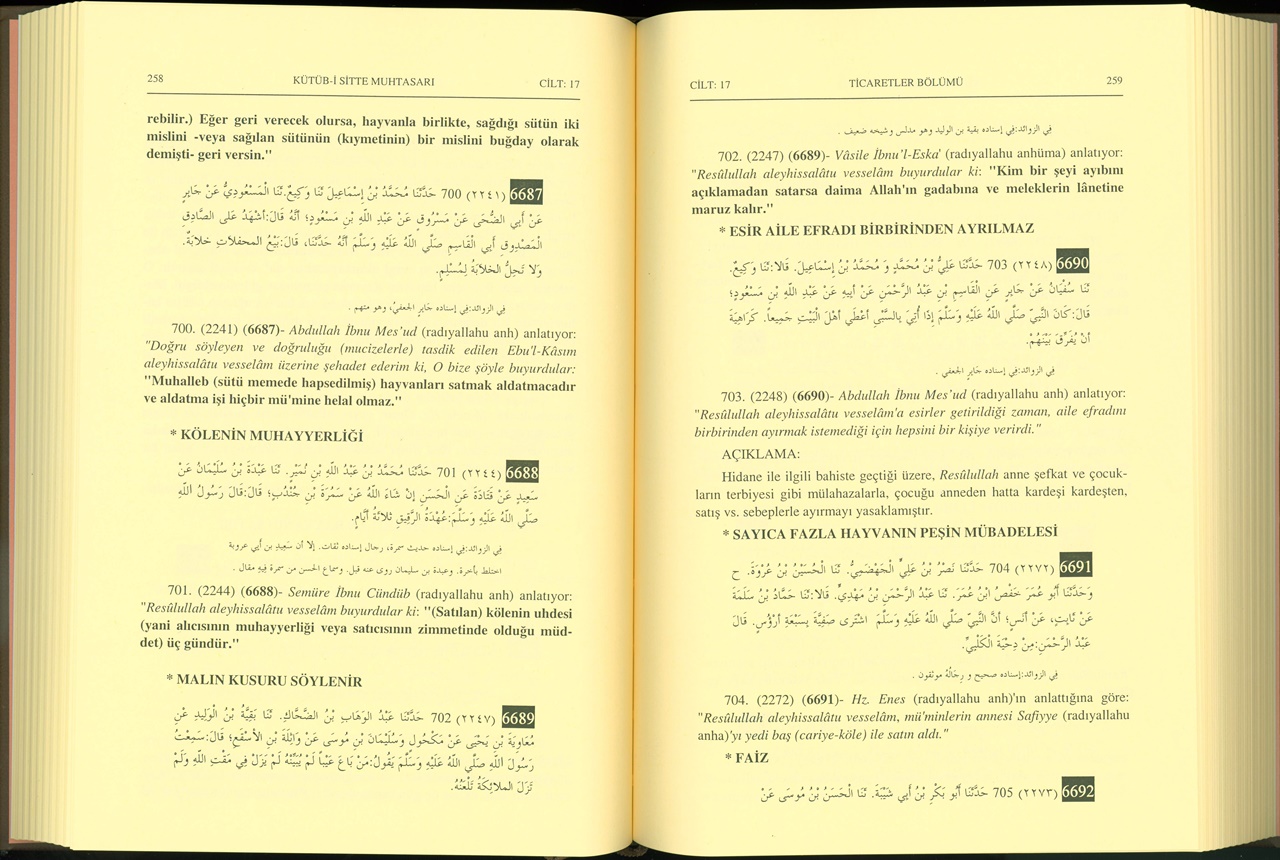 258 KÜTÜB-İ SİTTE MUHTASARI CİLT: 17
rebilir.) Eğer geri verecek olursa, hayvanla birlikte, sağdığı sütün iki
mislini -veya sağılan sütünün (kıymetinin) bir mislini buğday olarak
demişti- geri versin."
6687 700 (٢٢٤١) حَدَّثَنَا مُحَمَّدُ بْنُ إِسْمَاعِيلَ ثَنَا وَكِيعٌ. ثَنَا الْمَسْعُودِيُّ عَنْ جَابِرٍ
عَنْ أَبِي الضُّحَى عَنْ مَسْرُوقٍ عَنْ عَبْدِ اللَّهِ بْنِ مَسْعُودٍ؛ أَنَّهُ قَالَ:أَشْهَدُ عَلى الصَّادِقِ
الْمَصْدِوقِ أَبِي الْقَاسِمِ صَلَّي اللَّهُ عَلَيْهِ وَسَلَّمَ أَنَّهُ حَدَّثَنَا، قَالَ:بَيْعُ المحفلاَتِ خلاَبَةٌ.
وَلَا تَحِلُّ الخلاَبَةُ لِمُسْلِمٍ.
فِي الزوائد:فِي إسناده جَابِرٍ الجعفيُ، وهو متهم .
700. (2241) (6687)- Abdullah İbnu Mes'ud (radıyallahu anh) anlatıyor:
"Doğru söyleyen ve doğruluğu (mucizelerle) tasdik edilen Ebu'l-Kâsım
aleyhissalâtu vesselâm üzerine şehadet ederim ki, O bize şöyle buyurdular:
"Muhalleb (sütü memede hapsedilmiş) hayvanları satmak aldatmacadır
ve aldatma işi hiçbir mü'mine helal olmaz."
* KÖLENİN MUHAYYERLİĞİ
6688 701 (٢٢٤٤) حَدَّثَنَا مُحَمَّدُ بْنُ عَبْدُ اللَّهِ بْنِ نُمَيْرٍ. ثَنَا عَبْدَةَ بْنُ سُلَيْمَانُ عَنْ
سَعِيدٍ عَنْ قَتَادَةَ عَنِ الْحَسَنِ إِنْ شَاءَ اللَّهُ عَنْ سَمُرَةَ بْنِ جُنْدُبٍ؛ قَالَ:قَالَ رَسُولُ اللَّهِ
صَلَّي اللَّهُ عَلَيْهِ وَسَلَّمَ:عُهْدَةُ الرَّقِيقِ ثَلاَثَةُ أَيَّامٍ.
فِي الزوائد:فِي إسناده حديث سمرة، رجال إسناده ثقات. إلا أن سَعِيدِ بن أبي عروبة
اختلط بأخرة. وعبدة بن سليمان روى عنه قبل. وسماع الحسن من سمرة فِيهِ مقال .
701. (2244) (6688)- Semüre İbnu Cündüb (radıyallahu anh) anlatıyor:
"Resûlullah aleyhissalâtu vesselâm buyurdular ki: "(Satılan) kölenin uhdesi
(yani alıcısının muhayyerliği veya satıcısının zimmetinde olduğu müd-
det) üç gündür."
* MALIN KUSURU SÖYLENİR
6689 702 (٢٢٤٧) حَدَّثَنَا عَبْدُ الوَهَابِ بْنُ الضَّحَّاكِ. ثَنَا بَقِيَّةُ بْنُ الْوَلِيدِ عَنِ
مُعَاوِيَةَ بْنِ يَحْيَى عَنْ مَكْحُولٍ وَسُلَيْمَانَ بْنِ مُوسَى عَنْ وَاثِلَةَ بْنِ الأَسْقَعِ؛ قَالَ:سَمِعْتُ
رَسُولَ اللَّهِ صَلَّي اللَّهُ عَلَيْهِ وَسَلَّمَ يَقُولُ:مَنْ بَاعَ عَيْباً لَمْ يُبَيِّنْهُ لَمْ يَزَلْ فِي مَقْتِ اللَّهِ وَلَمْ
تَزَلِ الملائِكَةُ تَلْعَنُهُ.
CİLT: 17 TİCARETLER BÖLÜMÜ 259
فِي الزوائد:فِي إسناده بقية بن الوليد وهو مدلس وشيخه ضعيف .
702. (2247) (6689)- Vâsile İbnu'l-Eska' (radıyallahu anhüma) anlatıyor:
"Resûlullah aleyhissalâtu vesselâm buyurdular ki: "Kim bir şeyi ayıbını
açıklamadan satarsa daima Allah'ın gadabına ve meleklerin lânetine
maruz kalır."
* ESİR AİLE EFRADI BİRBİRİNDEN AYRILMAZ
6690 703 (٢٢٤٨) حَدَّثَنَا عَلِيُّ بْنُ مُحَمَّدٍ وَ مُحَمَّدُ بْنُ إِسْمَاعِيلَ. قَالا:ثَنَا وَكِيعٌ.
ثَنَا سُفْيَانُ عَنْ جَابِرٍ عَنِ الْقَاسِمِ بْنِ عَبْدُ الرَّحْمَنِ عَنْ أَبِيهِ عَنْ عَبْدِ اللَّهِ بْنِ مَسْعُودٍ؛
قَالَ:كَانَ النَّبِيّ صَلَّي اللَّهُ عَلَيْهِ وَسَلَّمَ إِذَا أُتِيَ بِالسَّبْيِ أَعْطَي أَهْلَ الْبَيْتِ جَمِيعاً. كَرَاهِيَةَ
أَنْ يُفَرِّقَ بَيْنَهُمْ.
فِي الزوائد:فِي إسناده جَابِرٍ الجعفي .
703. (2248) (6690)- Abdullah İbnu Mes'ud (radıyallahu anh) anlatıyor:
"Resûlullah aleyhissalâtu vesselâm'a esirler getirildiği zaman, aile efradını
birbirinden ayırmak istemediği için hepsini bir kişiye verirdi."
AÇIKLAMA:
Hidane ile ilgili bahiste geçtiği üzere, Resûlullah anne şefkat ve çocuk-
ların terbiyesi gibi mülahazalarla, çocuğu anneden hatta kardeşi kardeşten,
satış vs. sebeplerle ayırmayı yasaklamıştır.
* SAYICA FAZLA HAYVANIN PEŞİN MÜBADELESİ
6691 704 (٢٢٧٢) حَدَّثَنَا نَصْرُ بْنُ عَلِيٍّ الْجَهْضَمِيُّ. ثَنَا الْحُسَيْنُ بْنُ عُرْوَةَ. ح
وَحَدَّثَنَا أَبُو عُمَرَ حَفْصُ ابْنُ عُمَرَ. ثَنَا عَبْدُ الرَّحْمَنِ بْنُ مَهْدِيٍّ. قَالا:ثَنَا حَمَّادُ بْنُ سَلَمَةَ
عَنْ ثَابِتٍ، عَنْ أَنَسٍ؛ أَنَّ النَّبِيَّ صَلَّي اللَّهُ عَلَيْهِ وَسَلَّمَ اشْتَرى صَفِيَّةَ بِسَبْعَةِ أَرْؤُسٍ. قَالَ
عَبْدُ الرَّحْمَنِ:مِنْ دِحْيَةَ الْكَلْبِيِّ.
فِي الزوائد:إسناده صحيح و رِجَالُهُ موثقون .
704. (2272) (6691)- Hz. Enes (radıyallahu anh)'ın anlattığına göre:
"Resûlullah aleyhissalâtu vesselâm, mü'minlerin annesi Safiyye (radıyallahu
anha)'yı yedi baş (cariye-köle) ile satın aldı."
* FAİZ
6692 705 (٢٢٧٣) حَدَّثَنَا أَبُو بَكْرِ بْنُ أَبِي شَيْبَةَ. ثَنَا الْحَسَنُ بْنُ مُوسَى عَنْ